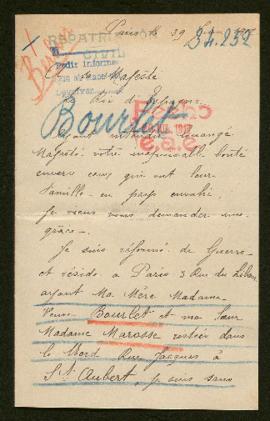 Paris le 29
34.232
RAPATRI
CIVIL
Bourlet
A Sa Majesté
Roi d'Espagne
Pecho
1917
majesté votre inépuisable bonté
envers ceux qui ont leur
famille en pays envahi
Je viens vous demander une
grâce
Je suis réformé de Guerre
et réside à Paris 3 Rue du Liban
ayant Ma Mère Madame
Veuve Bourlet et ma sœur
Madame Marosse restées dans
le Nord Rue Jacques à
St Aubert, je suis sans